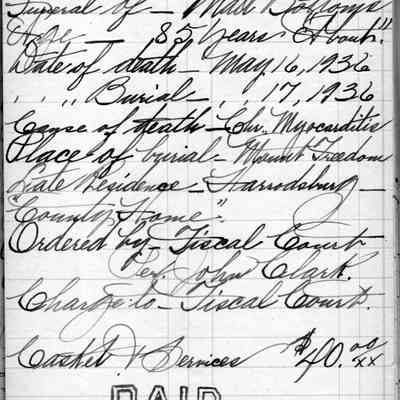 Funeral of - Matt Bottoms
Age - 85 Years "About"
Date of death - May 16, 1936
" " Burial - " 17, 1936
Cause of death - Chr. Myocarditis
Place of burial - Mount Freedom
Late Residence - Harrodsburg -
"County Home".
Ordered by - Fiscal Court
Per. John Clark.
Charge to - Fiscal Court.
Casket & Services $40.00
xx
PAID